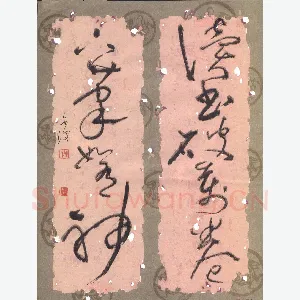 读书破万卷
下笔如有神
Shufawang.CN